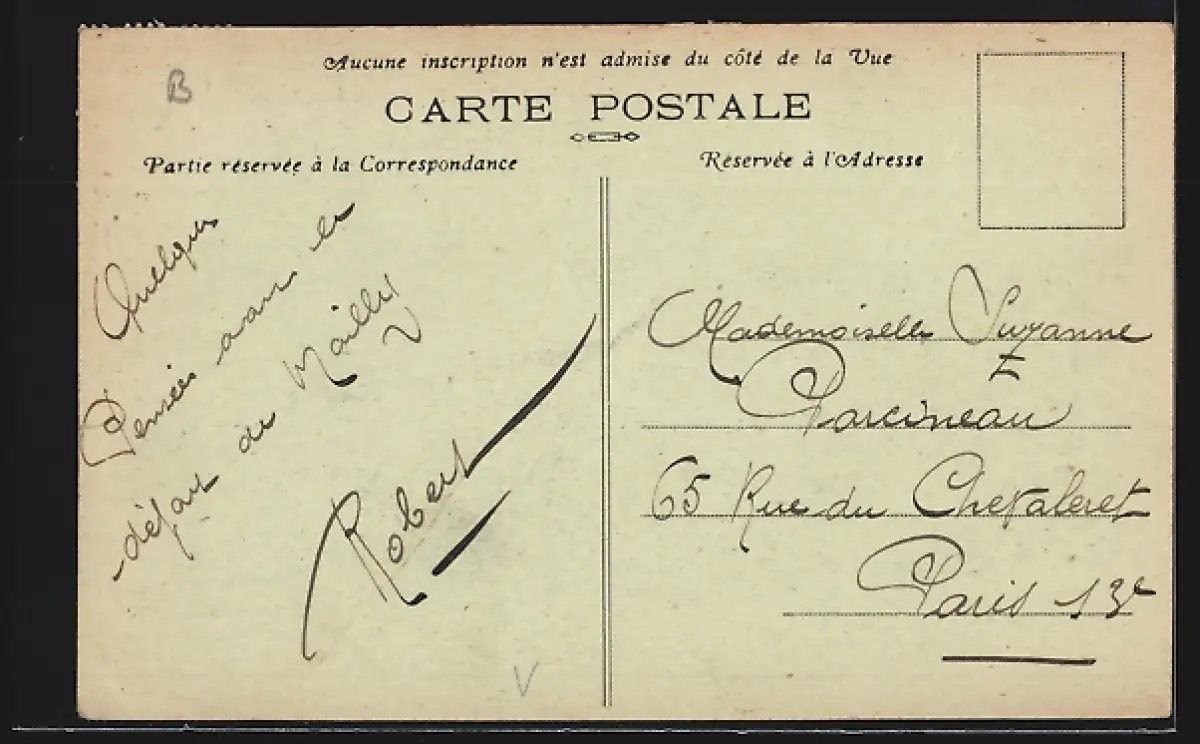 B
Aucune inscription n'est admise du côté de la Vue
CARTE POSTALE
Partie réservée à la Correspondance
Réservée à l'Adresse
Quelques
Pensées avant le
départ de Mailly
Robert
Mademoiselle Suzanne
Parcineau
65 Rue du Chevaleret
Paris 13e
V